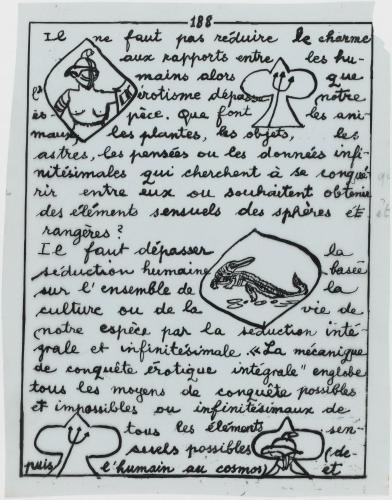 188
Il ne faut pas réduire le charme
aux rapports entre les hu-
mains alors que
l'érotisme dépasse notre
es- pèce. Que font les ani-
maux, les plantes, les objets, les
astres, les pensées ou les données infi-
nitésimales qui cherchent à se conqué-
rir entre eux ou souhaitent obtenir
des éléments sensuels des sphères ét-
rangères ?
Il faut dépasser la
séduction humaine basée
sur l'ensemble de la
culture ou de la vie de
notre espèce par la séduction inté-
grale et infinitésimale. «La mécanique
de conquête érotique intégrale" englobe
tous les moyens de conquête possibles
et impossibles ou infinitésimaux de
tous les éléments sen-
suels possibles (de-
puis l'humain au cosmos) et